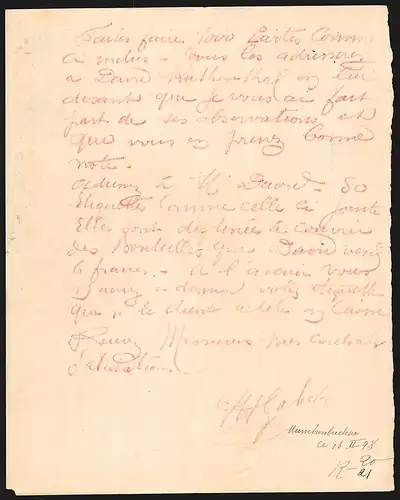 Faites faire 1000 Cartes comme
a melus - vous les adresserez
a David Ruthenthal en lui
disant que je vous ai fait
part de ses observations et
que vous en prenez bonne
note.
adressez à Mr David - 50
Etiquettes comme celle ci jointe
Elles sont destinées à couvrir
des Bouteilles que David vend
6 francs. - a l'avenir vous
n'aurez à donner cette étiquette
que si le client achète en Caisse
Recevez Messieurs mes cordiales
Salutations
Murschenbuchen
ce 13 II 98
R - 20
21